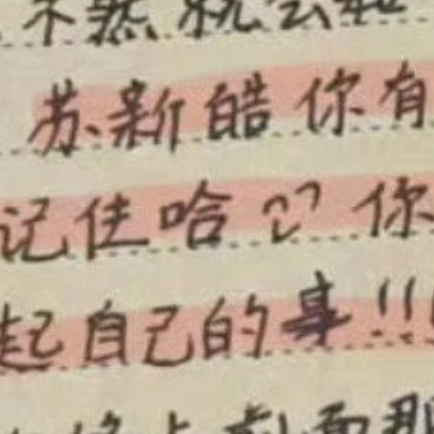 不然就会和
苏新皓你有
记住哈 你
起自己的事!!!